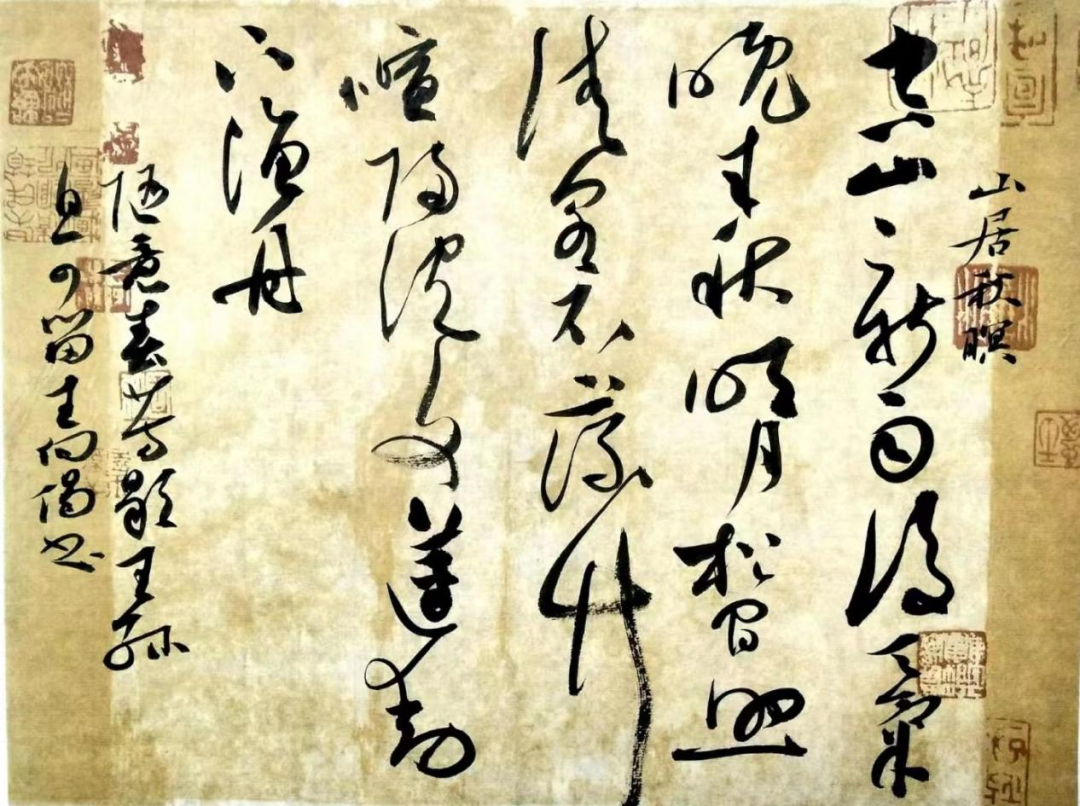 山居秋暝
空山新雨後天氣
晚来秋明月松間照
清泉石上流竹
喧歸浣女蓮動
下漁舟
随意春芳歇王孫
自可留